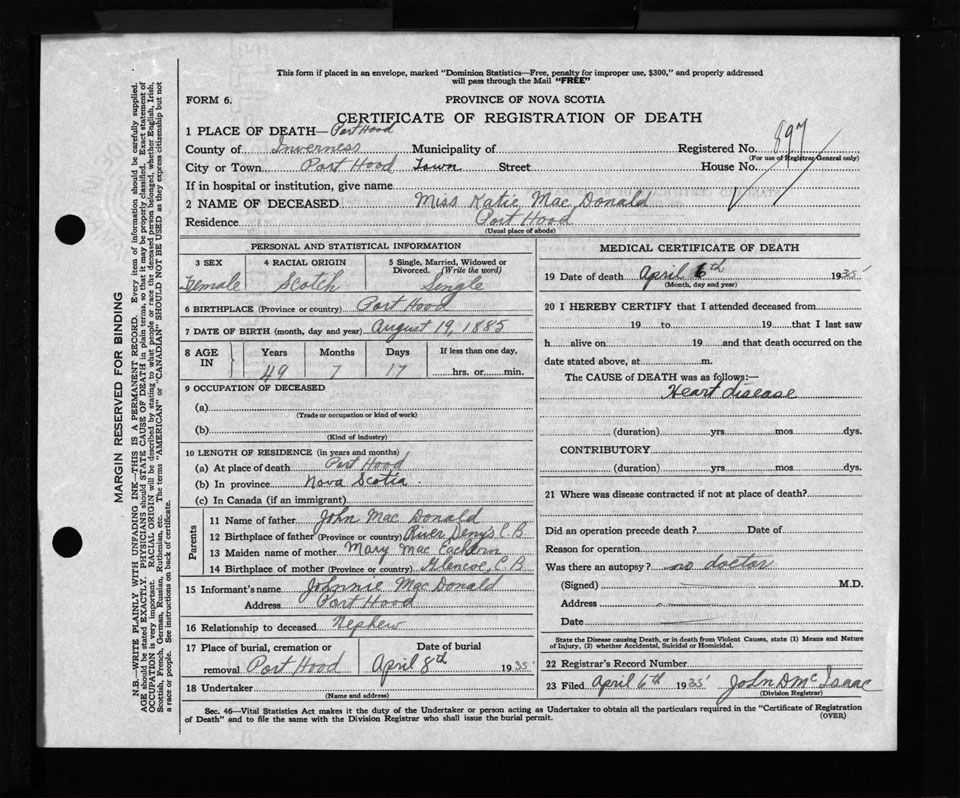 This form if placed in an envelope, marked "Dominion Statistics—Free, penalty for improper use, $300," and properly addressed
will pass through the Mail "FREE"
FORM 6.
PROVINCE OF NOVA SCOTIA
CERTIFICATE OF REGISTRATION OF DEATH
1 PLACE OF DEATH— Port Hood
County of Inverness Municipality of Registered No. 897
(For use of Registrar General only)
City or Town Port Hood Town Street House No.
If in hospital or institution, give name
2 NAME OF DECEASED Miss Katie Mac Donald
Residence Port Hood
(Usual place of abode)
PERSONAL AND STATISTICAL INFORMATION
3 SEX 4 RACIAL ORIGIN 5 Single, Married, Widowed or
Divorced. (Write the word)
Female Scotch Single
6 BIRTHPLACE (Province or country) Port Hood
7 DATE OF BIRTH (month, day and year) August 19, 1885
8 AGE IN Years Months Days If less than one day,
49 7 17 hrs. or min.
9 OCCUPATION OF DECEASED
(a)
(Trade or occupation or kind of work)
(b)
(Kind of industry)
10 LENGTH OF RESIDENCE (in years and months)
(a) At place of death Port Hood
(b) In province Nova Scotia
(c) In Canada (if an immigrant)
Parents
11 Name of father John Mac Donald
12 Birthplace of father (Province or country) River Denys C. B
13 Maiden name of mother Mary Mac Eachern
14 Birthplace of mother (Province or country) Glencoe, C. B
15 Informant's name Johnnie Mac Donald
Address Port Hood
16 Relationship to deceased Nephew
17 Place of burial, cremation or Date of burial
removal Port Hood April 8th 1935
18 Undertaker
(Name and address)
MEDICAL CERTIFICATE OF DEATH
19 Date of death April 6th 1935
(Month, day and year)
20 I HEREBY CERTIFY that I attended deceased from
19 to 19 that I last saw
h alive on 19 and that death occurred on the
date stated above, at m.
The CAUSE of DEATH was as follows:—
Heart disease
(duration) yrs. mos. dys.
CONTRIBUTORY
(duration) yrs. mos. dys.
21 Where was disease contracted if not at place of death?
Did an operation precede death? Date of
Reason for operation
Was there an autopsy? no doctor
(Signed) M.D.
Address
Date
State the Disease causing Death, or in death from Violent Causes, state (1) Means and Nature
of Injury, (2) whether Accidental, Suicidal or Homicidal.
22 Registrar's Record Number
23 Filed April 6th 1935 John D McIsaac
(Division Registrar)
Sec. 46—Vital Statistics Act makes it the duty of the Undertaker or person acting as Undertaker to obtain all the particulars required in the "Certificate of Registration
of Death" and to file the same with the Division Registrar who shall issue the burial permit.
(OVER)
MARGIN RESERVED FOR BINDING
N.B.—WRITE PLAINLY WITH UNFADING INK—THIS IS A PERMANENT RECORD. Every item of information should be carefully supplied.
AGE should be stated EXACTLY. PHYSICIANS should STATE CAUSE OF DEATH in plain terms, so that it may be properly classified. Exact statement of
OCCUPATION is very important. RACIAL ORIGIN will be described by stating to what people or race the deceased person belonged, whether English, Irish,
Scottish, French, German, Russian, Ruthenian, etc. The terms "AMERICAN" or "CANADIAN" SHOULD NOT BE USED as they express citizenship but not
a race or people. See instructions on back of certificate.